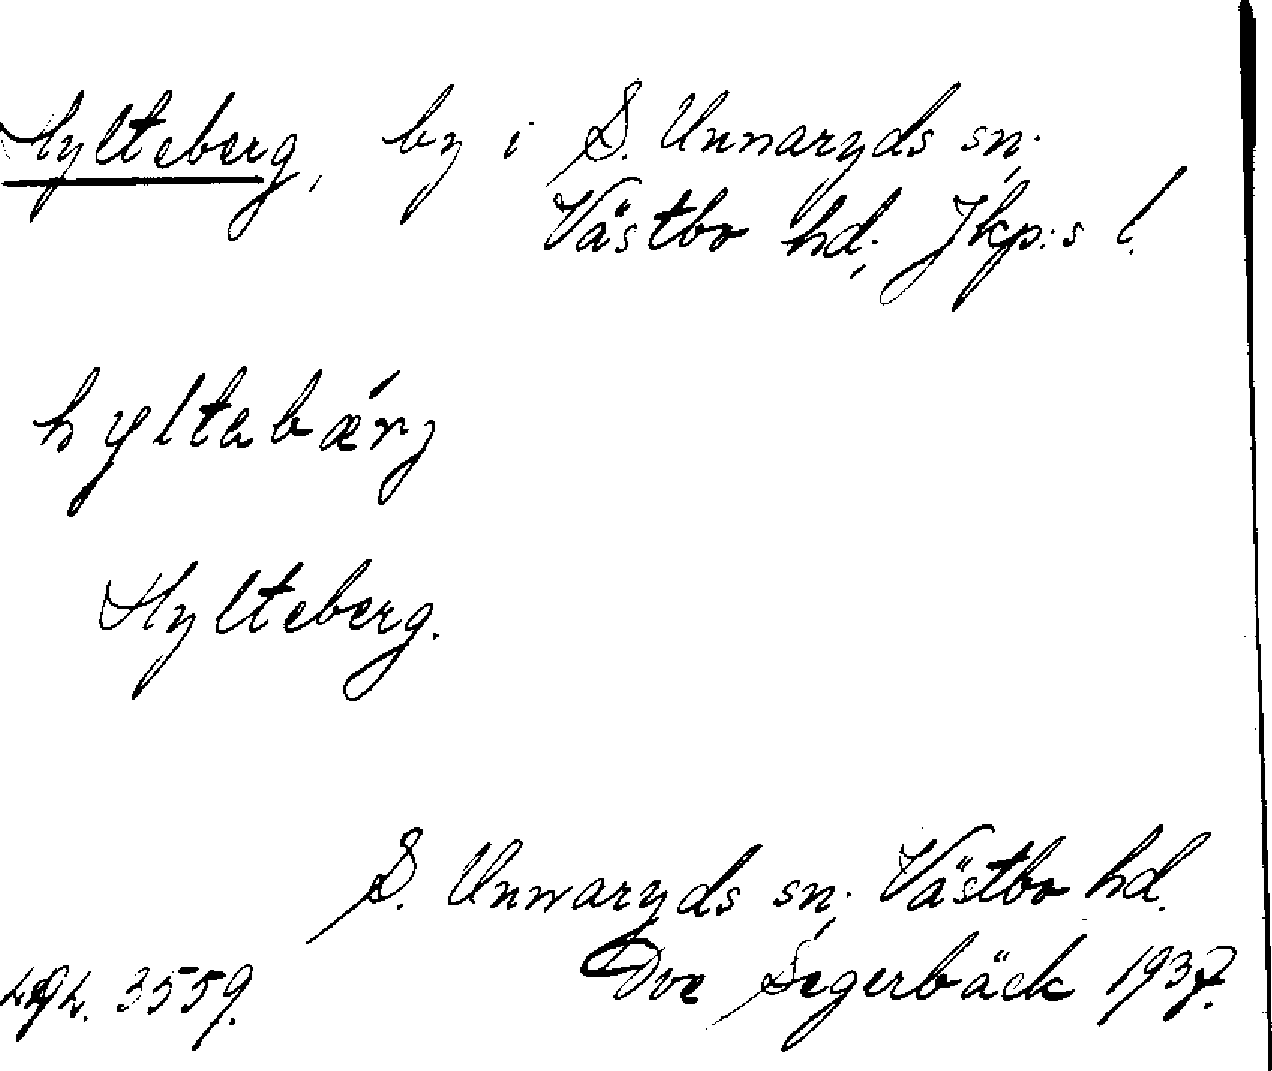 Hylteberg, by i S. Unnaryds sn.
Västbo hd; Jkp:s l.
hyltabærj
Hylteberg.
S. Unnaryds sn. Västbo hd.
3559. Ove Segerbäck 1937.